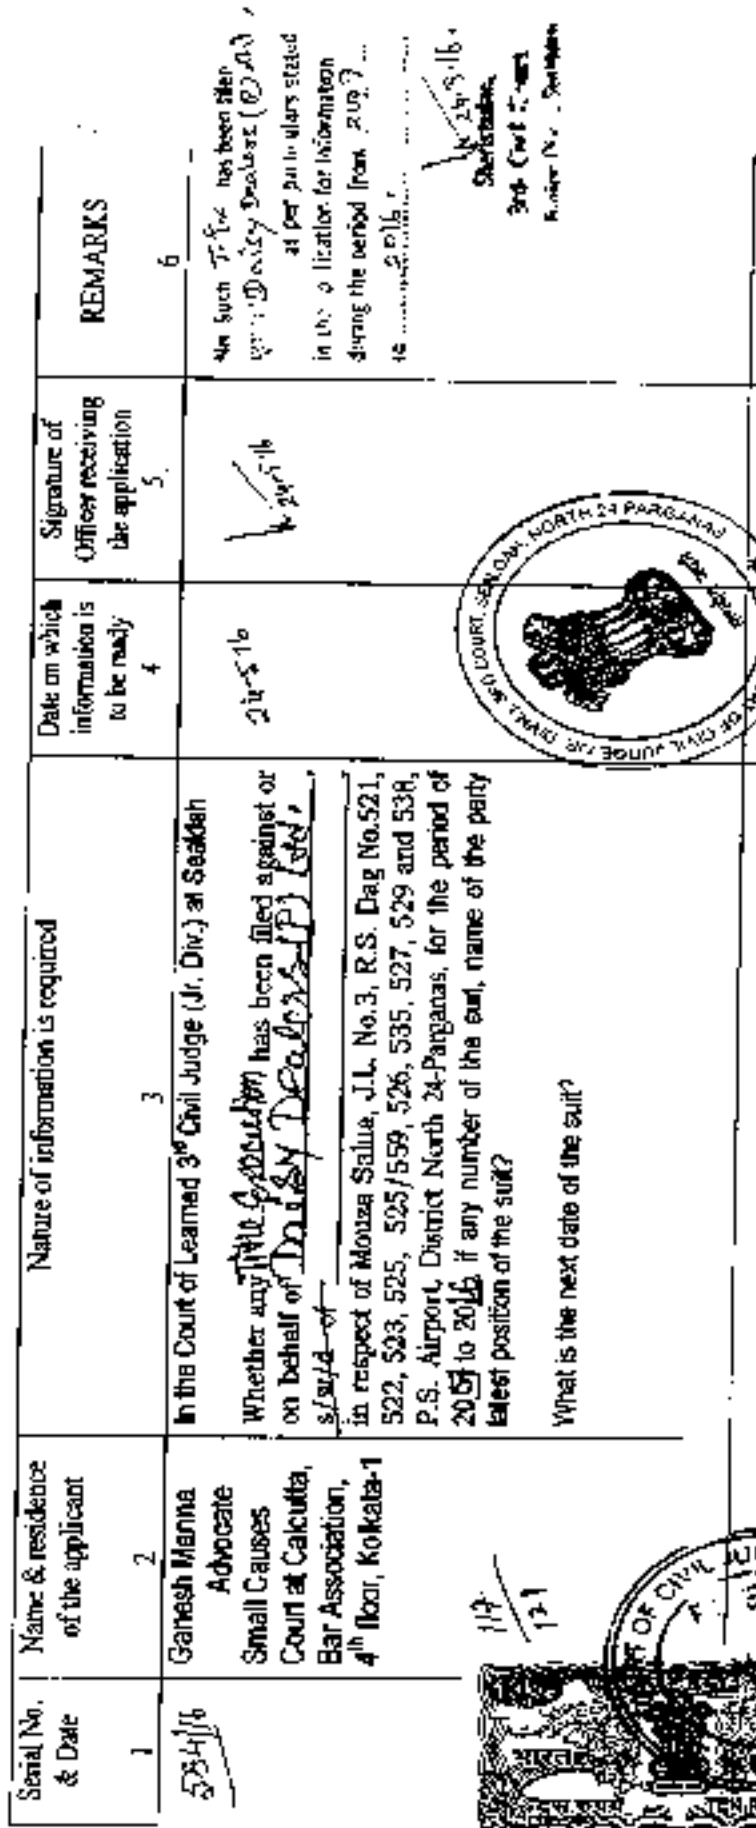 Serial No.
& Date
1
Name & residence
of the applicant
2
Nature of information is required
3
Date on which
information is
to be ready
4
Signature of
Officer receiving
the application
5.
REMARKS
6
584/16
Ganesh Manna
Advocate
Small Causes
Court at Calcutta,
Bar Association,
4th floor, Kolkata-1
In the Court of Learned 3rd Civil Judge (Jr. Div.) at Sealdah
Whether any Title Execution has been filed against or
on behalf of Daisy Dealers (P) Ltd.
s/w/d of
in respect of Mouza Salua, J.L. No.3, R.S. Dag No.521,
522, 523, 525, 525/559, 526, 535, 527, 529 and 538,
P.S. Airport, District North 24-Parganas, for the period of
2007 to 2016 if any number of the suit, name of the party
latest position of the suit?
What is the next date of the suit?
24-5-16
24-5-16
No Such has been filed
Daisy Dealers (P) Ltd.
as per particulars stated
in the application for information
during the period from 2007
to 2016
24-5-16
Sheristadar
3rd Civil Court
COURT, SEALDAH, NORTH 24 PARGANAS
OF CIVIL JUDGE (JR. DIVN.) 3RD
सत्यमेव जयते
117
121
OF CIVIL
भारत